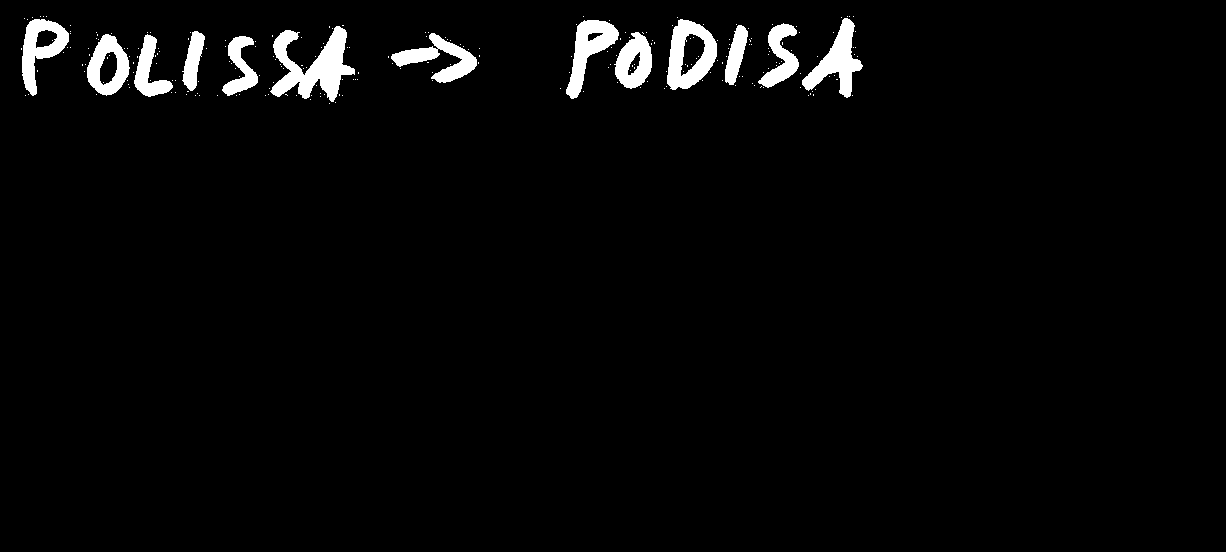 POLISSA → PODISA